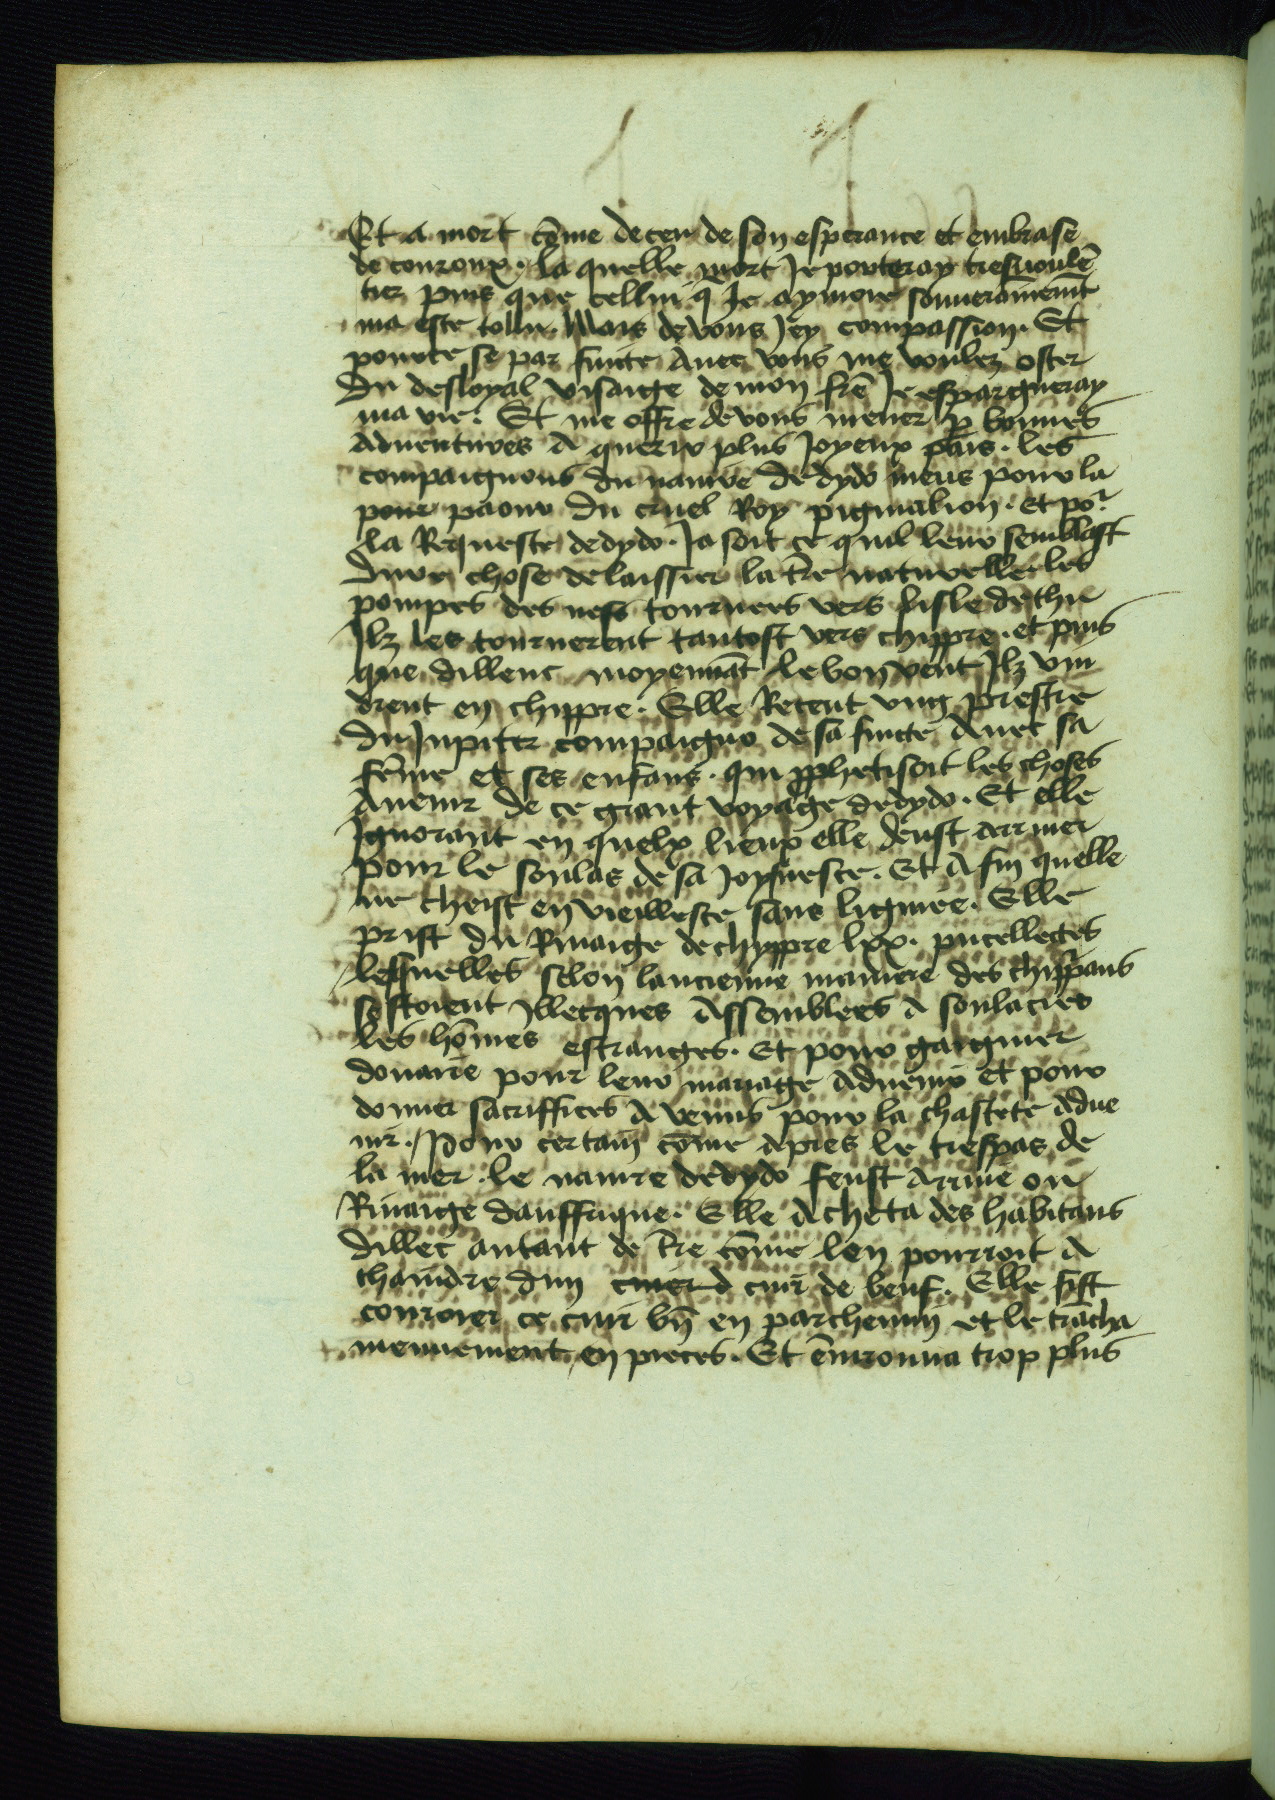 Et a mort cõme deceu de son esperance et embrase
de couroux. la quelle mort Je porteray tresuoulẽ
tiers puis que cellui q̃ Je aymoie souuerainemẽt
ma este tollu. Mais de vous Jey compassion. Et
pource se par fuite Auec vous me voulez oster
Du desloyal visaige de mon frẽ Je espargneray
ma vie. Et me offre de vous mener p̱ bonnes
Aduentures A querir plus Joyeux pais. les
compaignons du nauire de dydo meus pour la
pour paour du cruel Roy pigmalion. et po.r
la Requeste de dydo. Ja soit ce quil leur semblast
Dure chose delaissier la t̃re naturelle. les
pompes des nefs tournees vers lisle de thir
Ilz les tournerent tantost vers chippre. et puis
que dillenc moyennãt le bon vent Ilz vin
drent en chippre. Elle Receut ung prestre
du Jupiter compaignõ de sa fuicte Auec sa
fẽme et ses enfans. qui p̱phetisoit les choses
Auenir de ce grant voyage de dydo. Et elle
Ignorant en quelx lieux elle deust arriuer
pour le soulas de sa Joyfuesce. Et A fin quelle
ne cheist en vieillesce sans lignie. Elle
prist du Riuaige de chyppre lxx. pucellectes
lesquelles selon lancienne maniere des chiprians
sestoient Illecques Assemblees A soulacier
les hõmes estranges. Et pour gaigner
douaire pour leur mariage Aduenir et pour
donner sacriffices A venus pour la chastete Adue
nir. Pour certain cõme apres le trespas de
la mer. le nauire de dydo feust arriue ou
Riuaige dauffrique. Elle Acheta des habitans
dillec autant de t̃re cõme len pourroit A
chaindre dun cuier d cuir de beuf. Elle fist
couroier ce cuir bñ en parchemin et le trãcha
menuement en pieces. Et ẽuironna trop plus